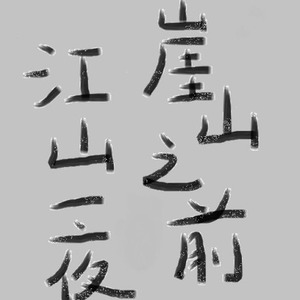 崖山之前
江山一夜